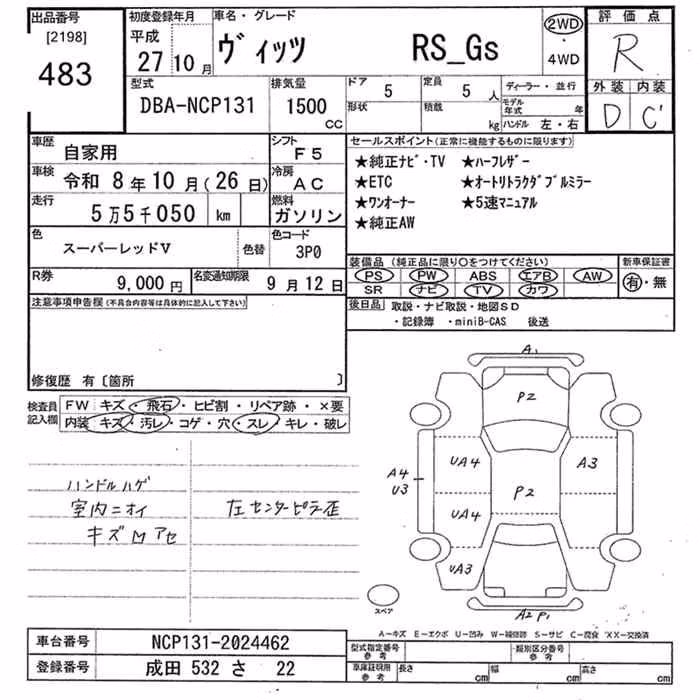 出品番号
[2198]
483
初度登録年月
平成
27 10 月
車名・グレード
ヴィッツ RS_Gs
2WD
・
4WD
評価点
R
外装 内装
D C'
型式
DBA-NCP131
排気量
1500
CC
ドア
5
定員
5 人
形状
積載
kg
ディーラー・並行
モデル年式 年
ハンドル 左・右
車歴
自家用
シフト
F5
車検
令和 8年10月(26日)
冷房
AC
走行
5万5千050 km
燃料
ガソリン
色
スーパーレッドV
色替
色コード
3P0
R券
9,000円
名変通知期限
9月12日
セールスポイント(正常に機能するものに限ります)
★純正ナビ・TV ★ハーフレザー
★ETC ★オートリトラクタブルミラー
★ワンオーナー ★5速マニュアル
★純正AW
装備品 (純正品に限り○をつけてください)
PS PW ABS エアB AW
SR ナビ TV カワ
新車保証書
有・無
後日品 取説・ナビ取説・地図SD
・記録簿・miniB-CAS 後送
注意事項申告欄(不具合内容等は具体的に記入して下さい)
修復歴 有〔箇所 〕
検査員
記入欄
FW キズ・飛石・ヒビ割・リペア跡・×要
内装 キズ・汚レ・コゲ・穴・スレ・キレ・破レ
ハンドルハゲ
室内ニオイ
キズMアセ
左センターピラー歪
A1
P2
UA4
A3
A4
U3
P2
UA4
UA3
A2 P1
スペア
A－キズ E－エクボ U－凹み W－補修跡 S－サビ C－腐食 XX－交換済
車台番号 NCP131-2024462
登録番号 成田 532 さ 22
型式指定番号
参考
類別区分番号
参考
車庫証明用
参考
長さ cm 幅 cm 高さ cm